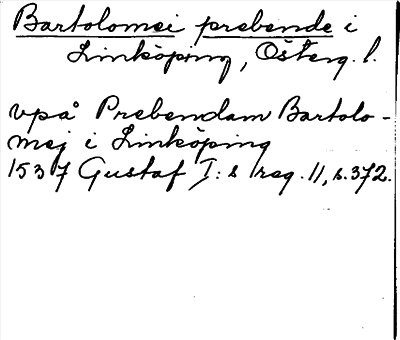 Bartolomei prebende i
Linköping, Österg. l.
vpå Prebendam Bartolo-
mej i Linköping
1537 Gustaf I:s reg. 11, s. 372.